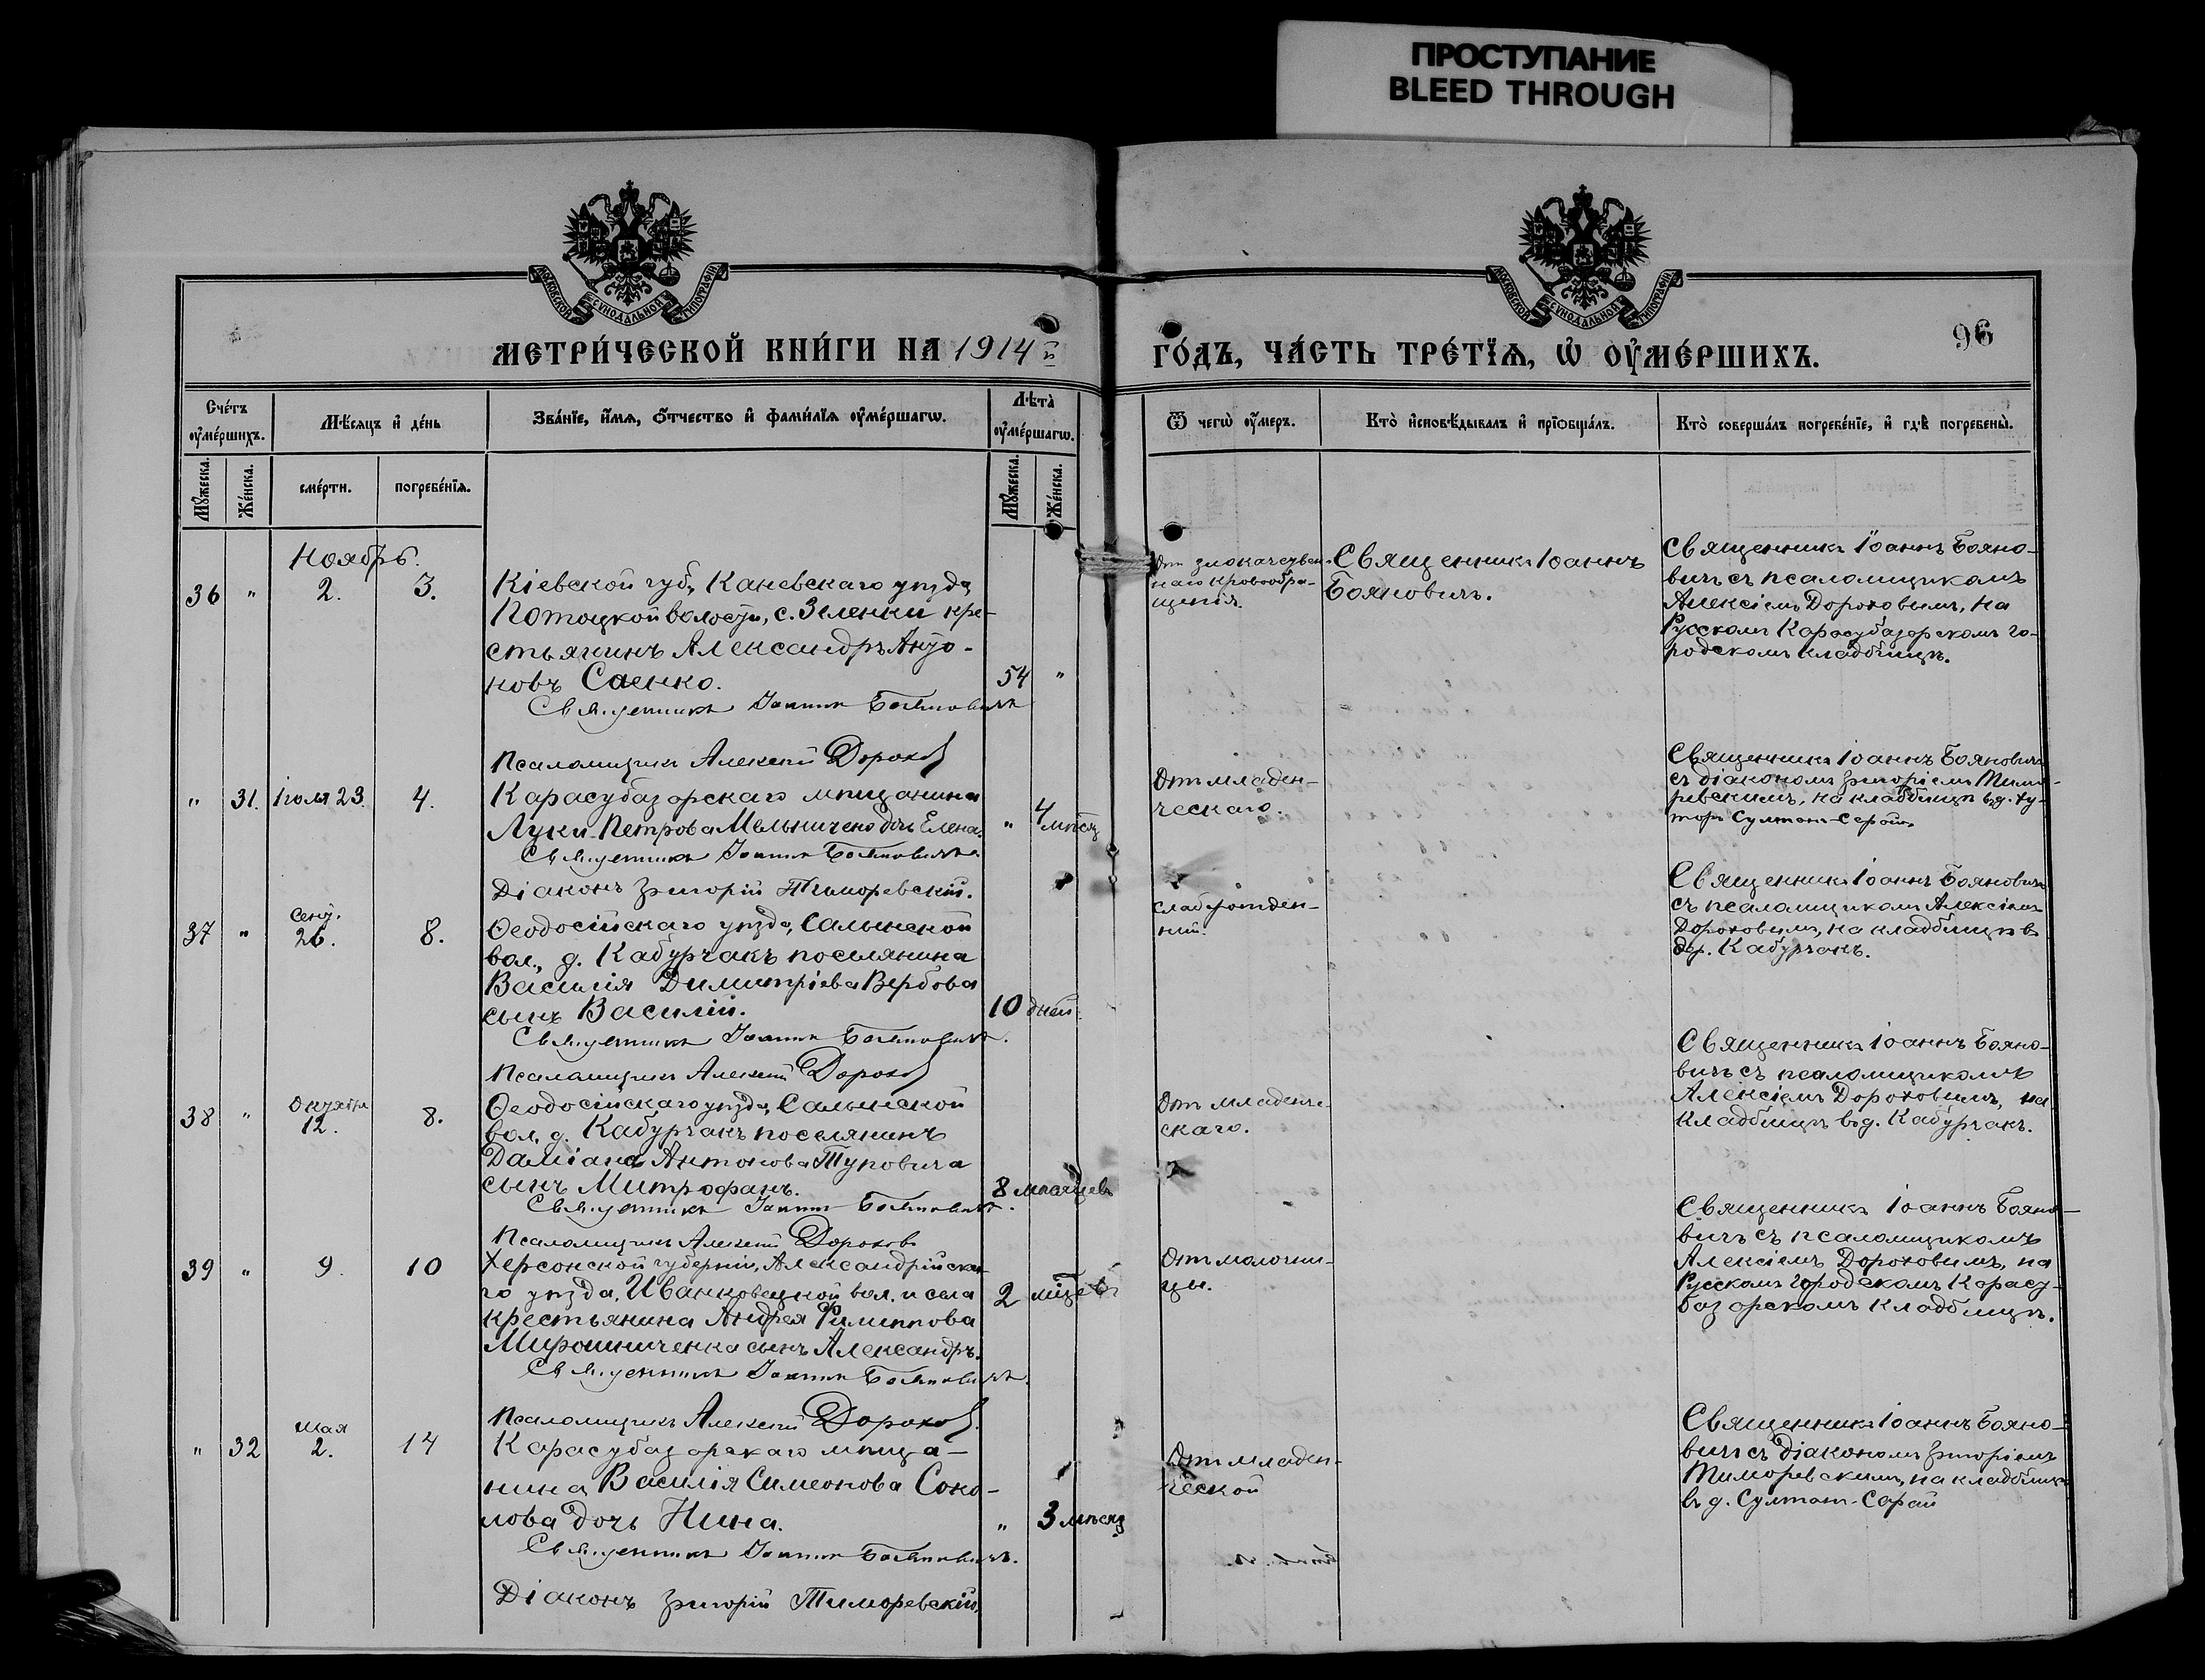 ПРОСТУПАНИЕ
BLEED THROUGH
МОСКОВСКОЙ СѴНОДАЛЬНОЙ ТИПОГРАФІИ
МОСКОВСКОЙ СѴНОДАЛЬНОЙ ТИПОГРАФІИ
96
МЕТРИ́ЧЕСКОЙ КНИ́ГИ НА 1914й
ГО́ДЪ, ЧА́СТЬ ТРЕ́ТЇѦ, Ѡ҆ ОУ҆МЕ́РШИХЪ.
Сче́тъ оу҆ме́ршихъ.
Мѣ́сяцъ и҆ де́нь
Зва́нїе, и҆́мѧ, ѻ҆́тчество и҆ фами́лїѧ оу҆ме́ршагѡ.
Лѣта̀ оу҆ме́ршагѡ.
Ѿ чегѡ̀ оу҆́меръ.
Кто̀ и҆сповѣ́дывалъ и҆ прїобща́лъ.
Кто̀ соверша́лъ погребе́нїе, и҆ гдѣ̀ погребены̀.
Мꙋ́жеска.
Же́нска.
сме́рти.
погребе́нїѧ.
Мꙋ́жеска.
Же́нска.
Ноябрь.
36 " 2. 3.
Кіевской губ, Каневскаго уѣзда,
Потоцкой волости, с. Зеленки кре-
стьянинъ Александръ Анто-
новъ Саенко.
54 "
Священникъ Іоаннъ Бояновичъ
Псаломщикъ Алексѣй Дорохов
От злокачествен-
наго кровообра-
щенія.
Священникъ Іоаннъ
Бояновичъ.
Священникъ Іоаннъ Бояно-
вичъ съ псаломщикомъ
Алексіемъ Дороховымъ, на
Русскомъ Карасубазарскомъ го-
родскомъ кладбищѣ.
" 31. Іюля 23. 4.
Карасубазарскаго мѣщанина
Луки Петрова Мельничено дочь Елена.
" 4 мѣсяц
Священникъ Іоаннъ Бояновичъ.
Діаконъ Григорій Тиморевскій.
От младен-
ческаго.
Священникъ Іоаннъ Бояновичъ
съ діакономъ Григоріемъ Тимо-
ревскимъ, на кладбищѣ въ д. Ху-
торъ Султанъ-Сарай.
37 " Сент. 26. 8.
Ѳеодосійскаго уѣзда, Салынской
вол., д. Кабурчакъ поселянина
Василія Димитріева Вербова
сынъ Василій.
10 дней.
Священникъ Іоаннъ Бояновичъ.
Псаломщикъ Алексѣй Дорохов
Слаборожден-
ный.
Священникъ Іоаннъ Бояновичъ
съ псаломщикомъ Алексіемъ
Дороховымъ, на кладбищѣ въ
дер. Кабурчакъ.
38 " Октября 12. 8.
Ѳеодосійскаго уѣзда, Салынской
вол. д. Кабурчакъ поселянинъ
Даміана Антонова Туповича
сынъ Митрофанъ.
8 мѣсяцевъ
Священникъ Іоаннъ Бояновичъ.
Псаломщикъ Алексѣй Дороховъ
Отъ младенче-
скаго.
Священникъ Іоаннъ Бояно-
вичъ съ псаломщикомъ
Алексіемъ Дороховымъ, на
кладбищѣ въ д. Кабурчакъ.
39 " 9. 10
Херсонской губерніи, Александрійска-
го уѣзда, Иванковецкой вол. и села
крестьянина Андрея Филиппова
Мирошниченка сынъ Александръ.
2 мѣцевъ
Священникъ Іоаннъ Бояновичъ.
Псаломщикъ Алексѣй Дорохов.
От молочни-
цы.
Священникъ Іоаннъ Бояно-
вичъ съ псаломщикомъ
Алексіемъ Дороховымъ, на
Русскомъ городскомъ Карасу-
базарскомъ кладбищѣ.
" 32 мая 2. 14
Карасубазарскаго мѣща-
нина Василія Симеонова Соко-
лова дочь Нина.
" 3 мѣсяц
Священникъ Іоаннъ Бояновичъ.
Діаконъ Григорій Тиморевскій.
От младен-
ческой
Священникъ Іоаннъ Бояно-
вичъ съ діакономъ Григоріемъ
Тиморевскимъ, на кладбищѣ
въ д. Султанъ-Сарай